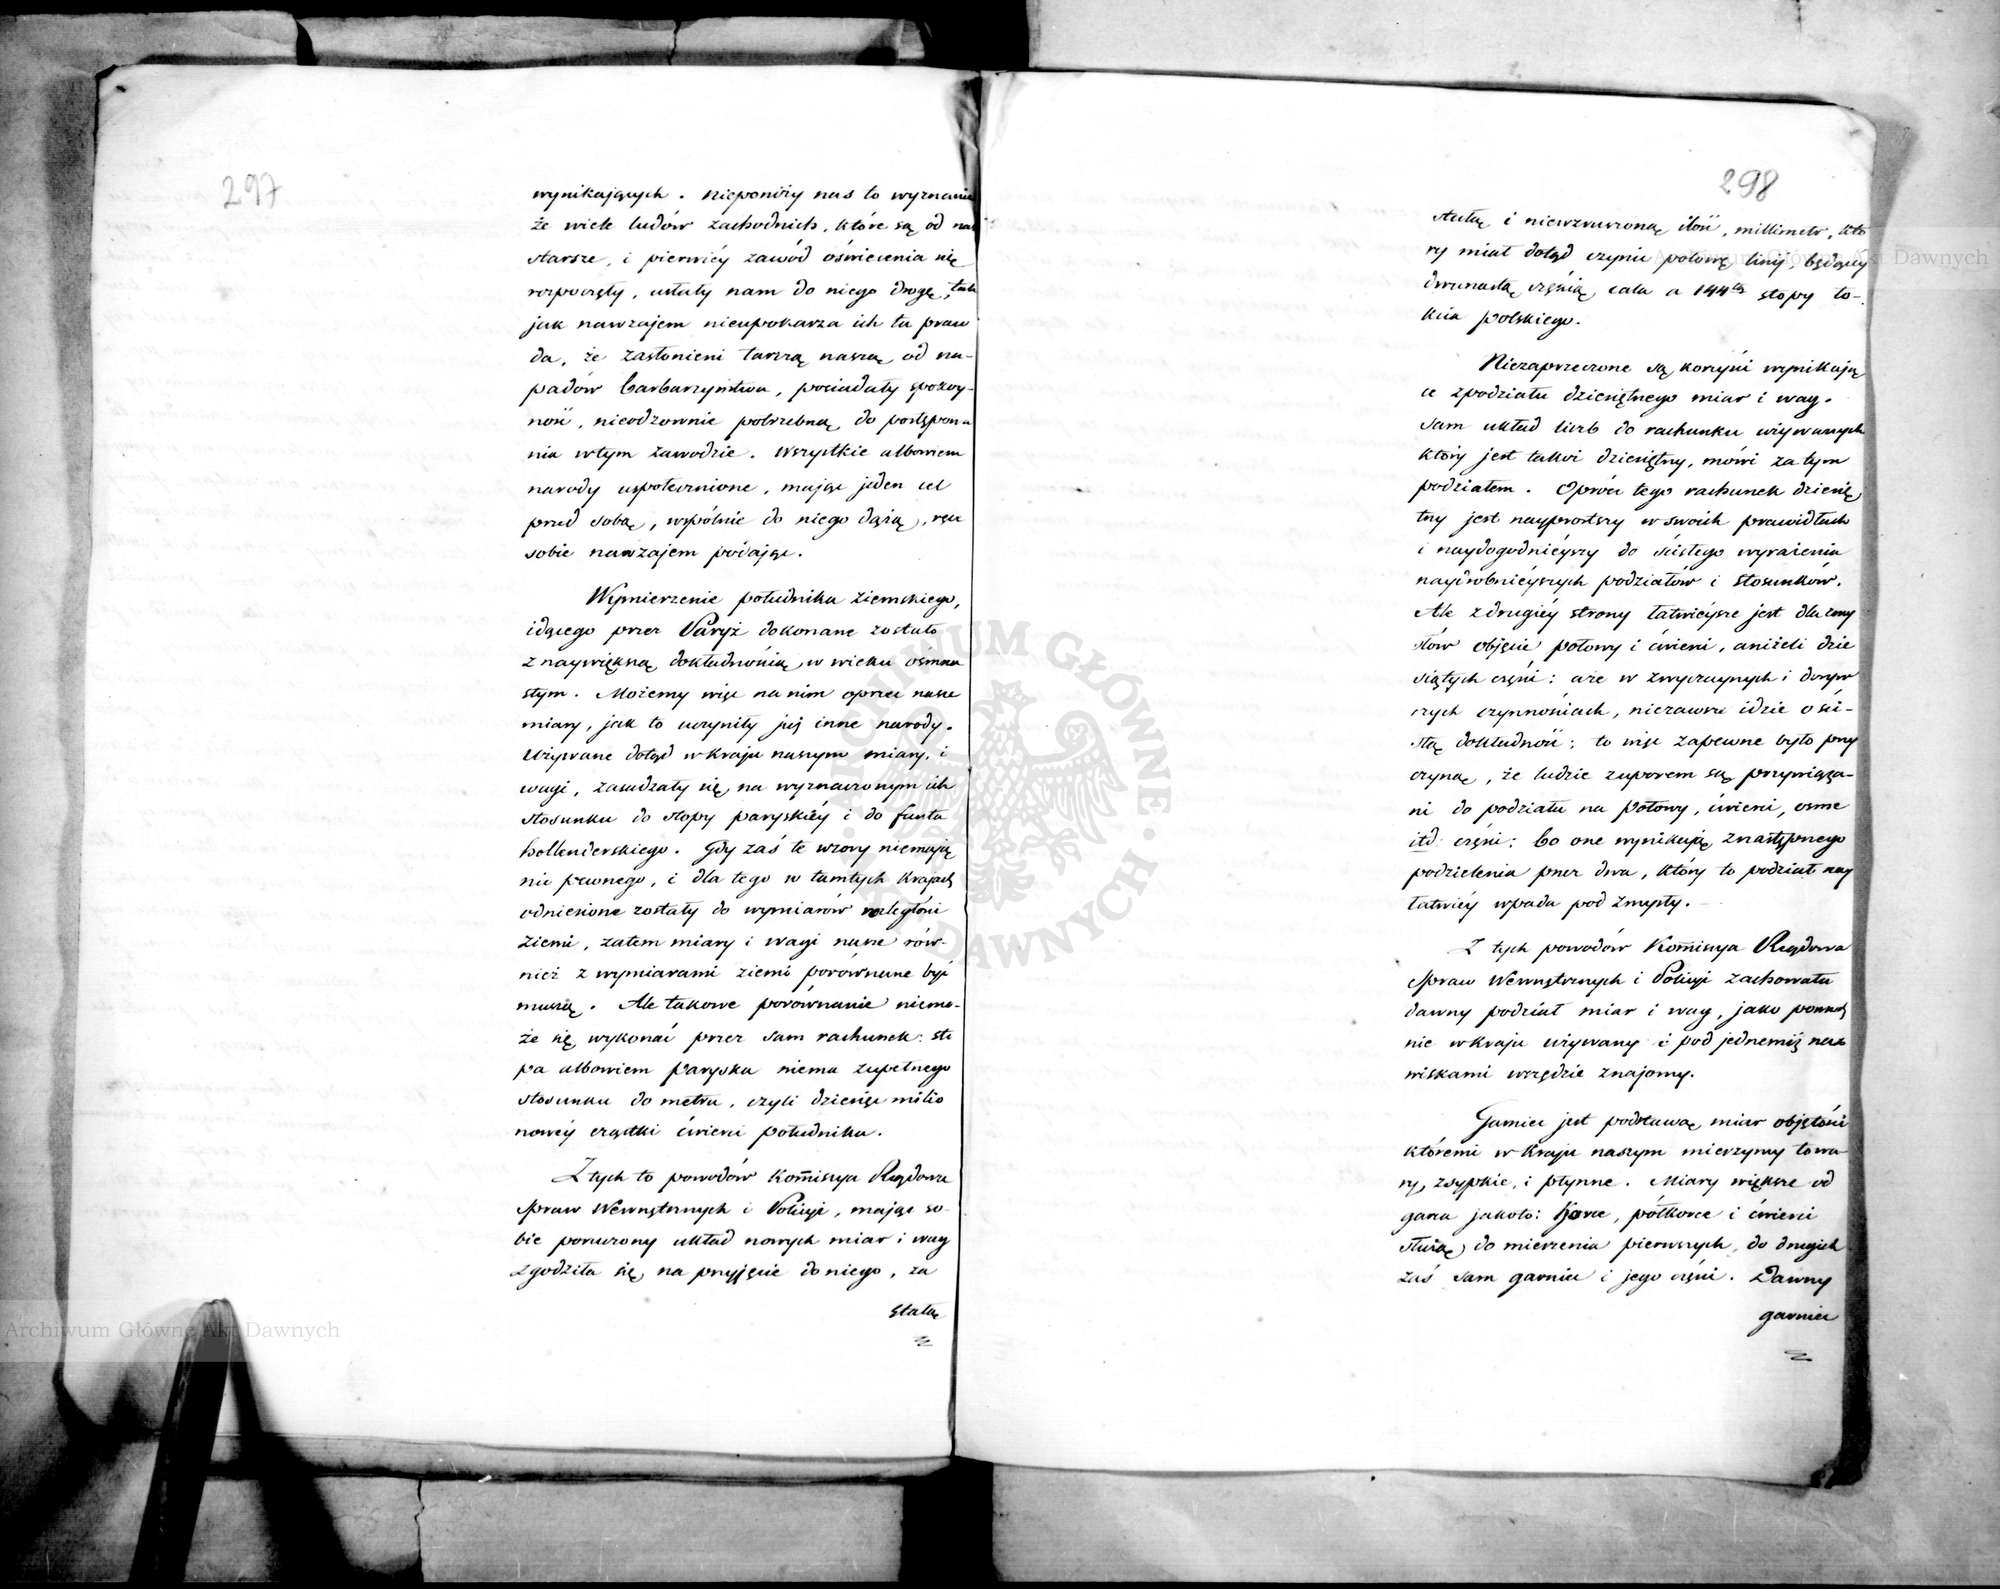 297
wynikających. Nieponiży nas to wyznanie
że wiele ludów zachodnich, które są od nas
starsze, i pierwéy zawód oświecenia się
rozpoczęły, usłały nam do niego drogę, tak
jak nawzajem nieupokarza ich ta praw
da, że zasłonieni tarczą naszą od na-
padów barbarzyństwa, posiadały spokoy-
ność, nieodzownie potrzebną do postępowa
nia w tym zawodzie. Wszystkie albowiem
narody uspołecznione, mając jeden cel
przed sobą, wspólnie do niego dążą, ręce
sobie nawzajem podając.
Wymierzenie południka ziemskiego,
idącego przez Paryż dokonane zostało
z naywiększą dokładnością w wieku ośmna
stym. Możemy więc na nim oprzeć nasze
miary, jak to uczyniły już inne narody.
Używane dotąd w kraju naszym miary, i
wagi, zasadzały się na wyznaczonym ich
stosunku do stopy paryskiéy i do funta
hollenderskiego. Gdy zaś te wzory niemają
nic pewnego, i dla tego w tamtych krajach
odniesione zostały do wymiarów rozległości
ziemi, zatem miary i wagi nasze rów-
nież z wymiarami ziemi porównane być
muszą. Ale takowe porównanie niemo-
że się wykonać przez sam rachunek: sto
pa albowiem Paryska niema zupełnego
stosunku do metru, czyli dziesięć milio
nowéy cząstki ćwierci południka.
Z tych to powodów Kommissya Rządowa
Spraw Wewnętrznych i Policyi, mając so-
bie poruczony układ nowych miar i wag
zgodziła się na przyjęcie do niego, za
stałą
298
stałą i niewzruszoną ilość, millimetr, któ
ry miał dotąd czynić połowę linij, będącéy
dwunastą częścią cala a 144tą stopy ło-
kcia polskiego.
Niezaprzeczone są korzyści wynikają
ce z podziału dziesiętnego miar i wag.
Sam układ liczb do rachunku używanych
który jest także dziesiętny, mówi za tym
podziałem. Oprócz tego rachunek dziesię
tny jest nayprostszy w swoich prawidłach
i naydogodniéyszy do ścisłego wyrażenia
naydrobniéyszych podziałów i stosunków.
Ale z drugiéy strony łatwiéysze jest dla zmy
słów objęcie połowy i ćwierci, aniżeli dzie
siątych części: a że w zwyczaynych i doryw
czych czynnościach, niezawsze idzie o ści-
słą dokładność; to więc zapewne było przy
czyną, że ludzie zuporem są przywiąza-
ni do podziału na połowy, ćwierci, osme
itd: części: bo one wynikają z następnego
podzielenia przez dwa, który to podział nay
łatwiéy wpada pod zmysły.
Z tych powodów Kommissya Rządowa
Spraw Wewnętrznych i Policyi zachowała
dawny podział miar i wag, jako powszech
nie w kraju używany i pod jednemiż naz
wiskami wszędzie znajomy.
Garniec jest podstawą miar objętości
któremi w kraju naszym mierzymy towa-
ry, zsypkie, i płynne. Miary większe od
garca jakoto: korce, półkorce i ćwierci
służą do mierzenia pierwszych, do drugich
zaś sam garniec i jego części. Dawny
garniec
Archiwum Główne Akt Dawnych
Archiwum Główne Akt Dawnych
ARCHIWUM GŁÓWNE AKT DAWNYCH